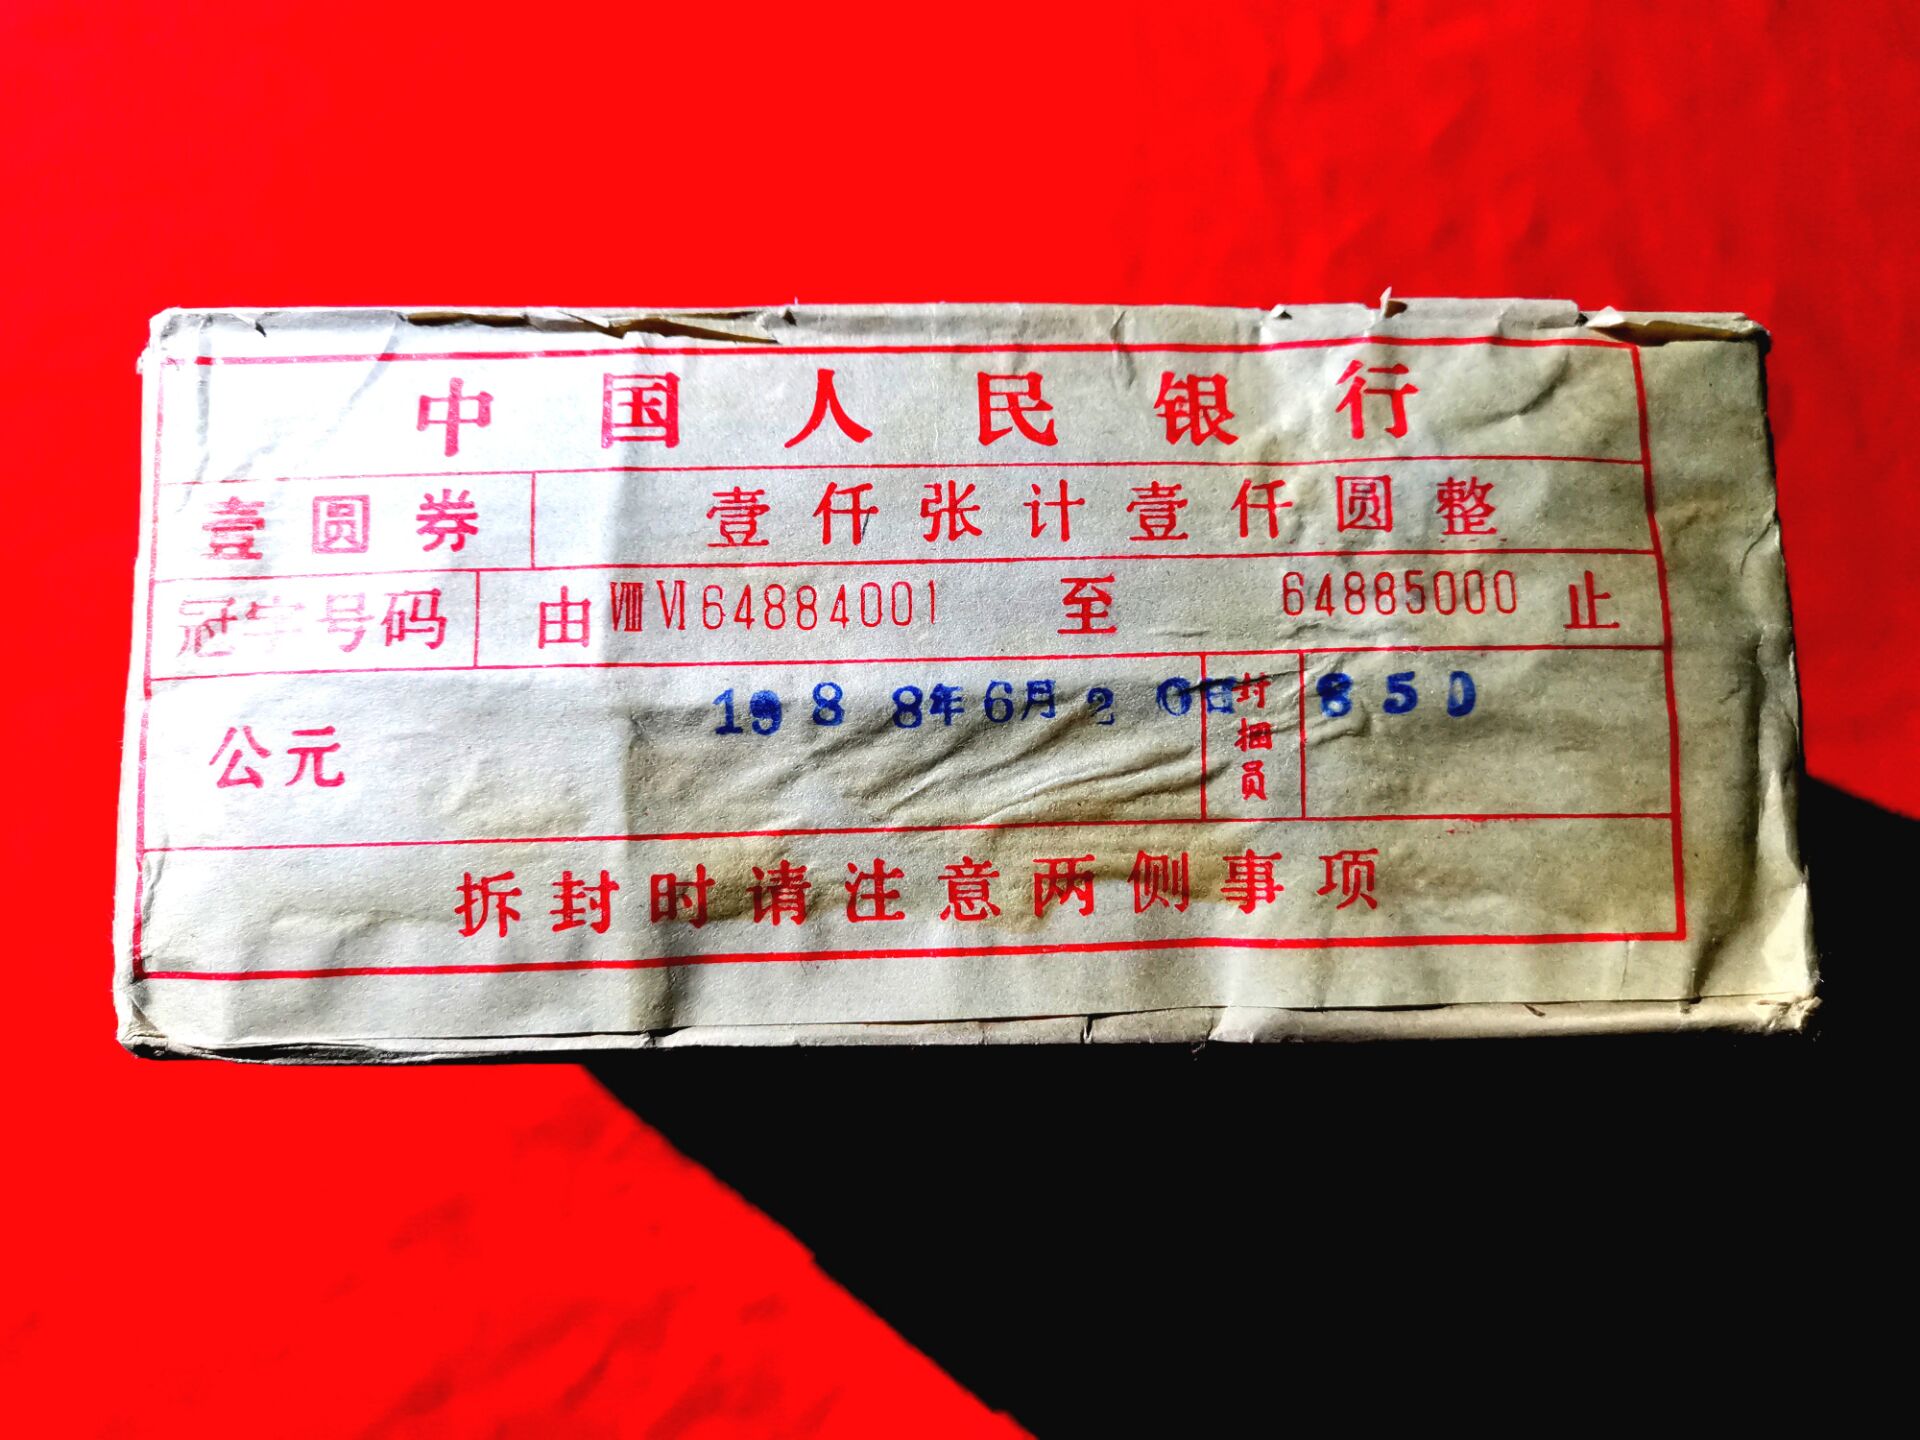 中国人民银行
壹圆券 壹仟张计壹仟圆整
冠字号码 由ⅧⅥ64884001 至 64885000 止
公元 1988年6月20日 封捆员 850
拆封时请注意两侧事项